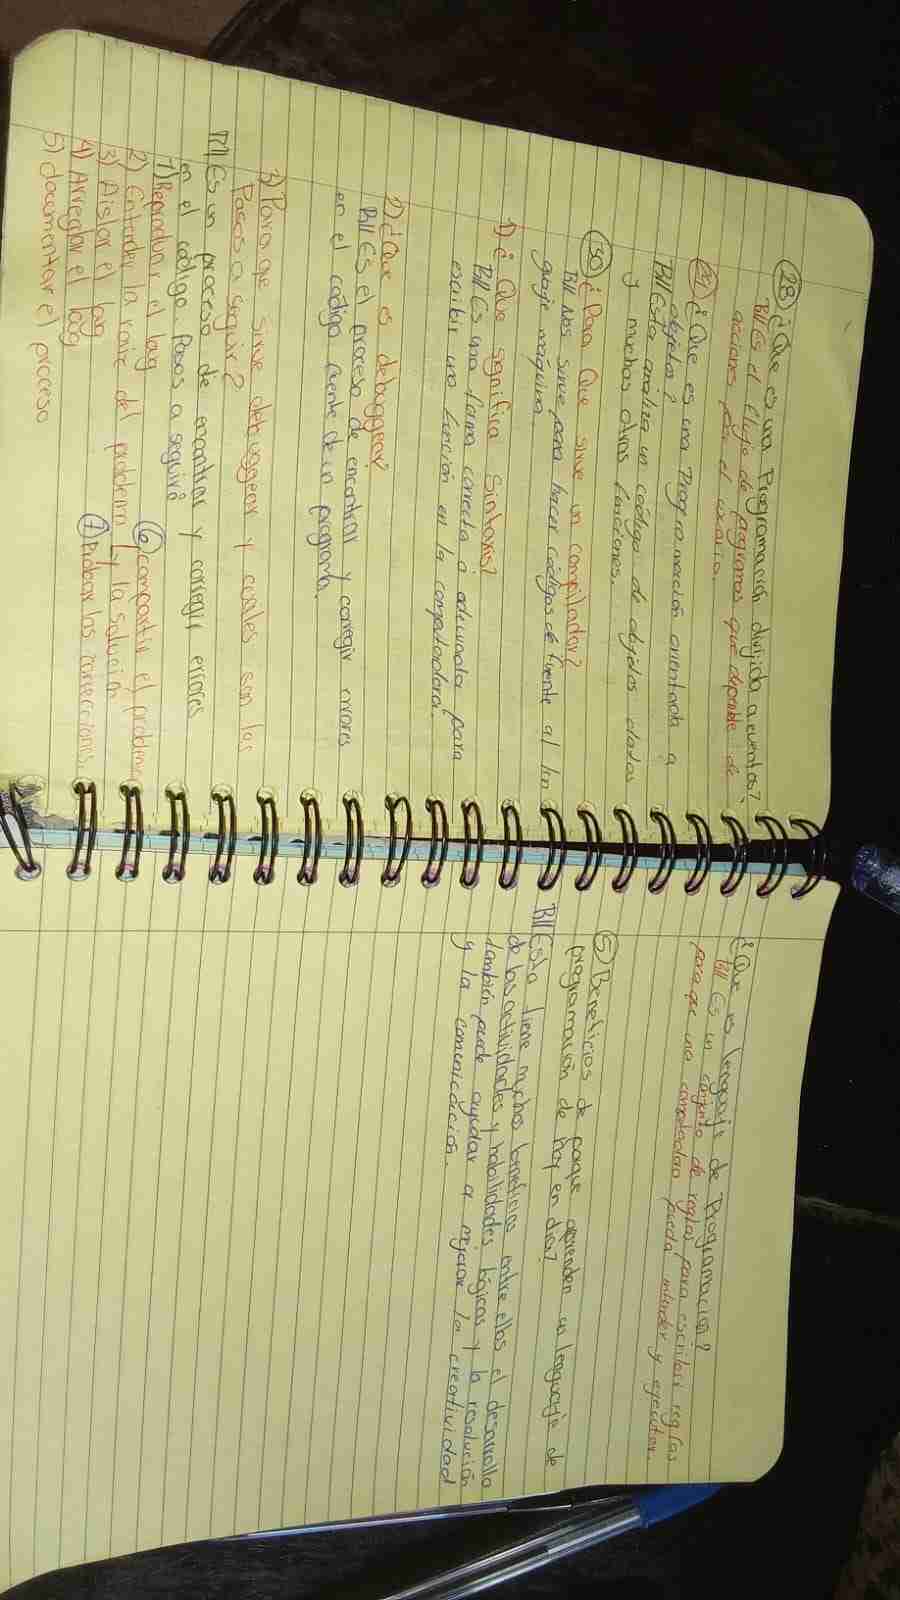 28) ¿Que es una Programación dirijida a eventos?
R// Es el flujo de programas que depende de
acciones por el usuario.
29) ¿Que es una Programación orientada a
objetos?
R// Esta analiza un código de objetos datos
y muchas otras funciones.
30) ¿Para Que sirve un compilador?
R// Nos sirve para hacer códigos de fuente al len
guaje máquina.
1) ¿Que significa Sintaxis?
R// Es una forma correcta o adecuada para
escribir una función en la computadora.
2) ¿Que es debuggear?
R// Es el proceso de encontrar y corregir errores
en el código fuente de un programa.
3) Para que sirve debuggear y cuales son los
Pasos a seguir?
R// Es un proceso de encontrar y corregir errores
en el código. Pasos a seguir:
1) Reproducir el bug
2) Entender la raíz del problema
3) Aislar el bug
4) Arreglar el bug
5) documentar el proceso
6) compartir el problema
y la solución
7) Probar las correcciones.
¿Que es lenguaje de Programación?
R// Es un conjunto de reglas para escribir reglas
para que una computadora pueda entender y ejecutar.
5) Beneficios de porque aprenden un lenguaje de
programación de hoy en día?
R// Esta tiene muchos beneficios entre ellos el desarrollo
de las actividades y habilidades lógicas y la resolución
también puede ayudar a mejorar la creatividad
y la comunicación.